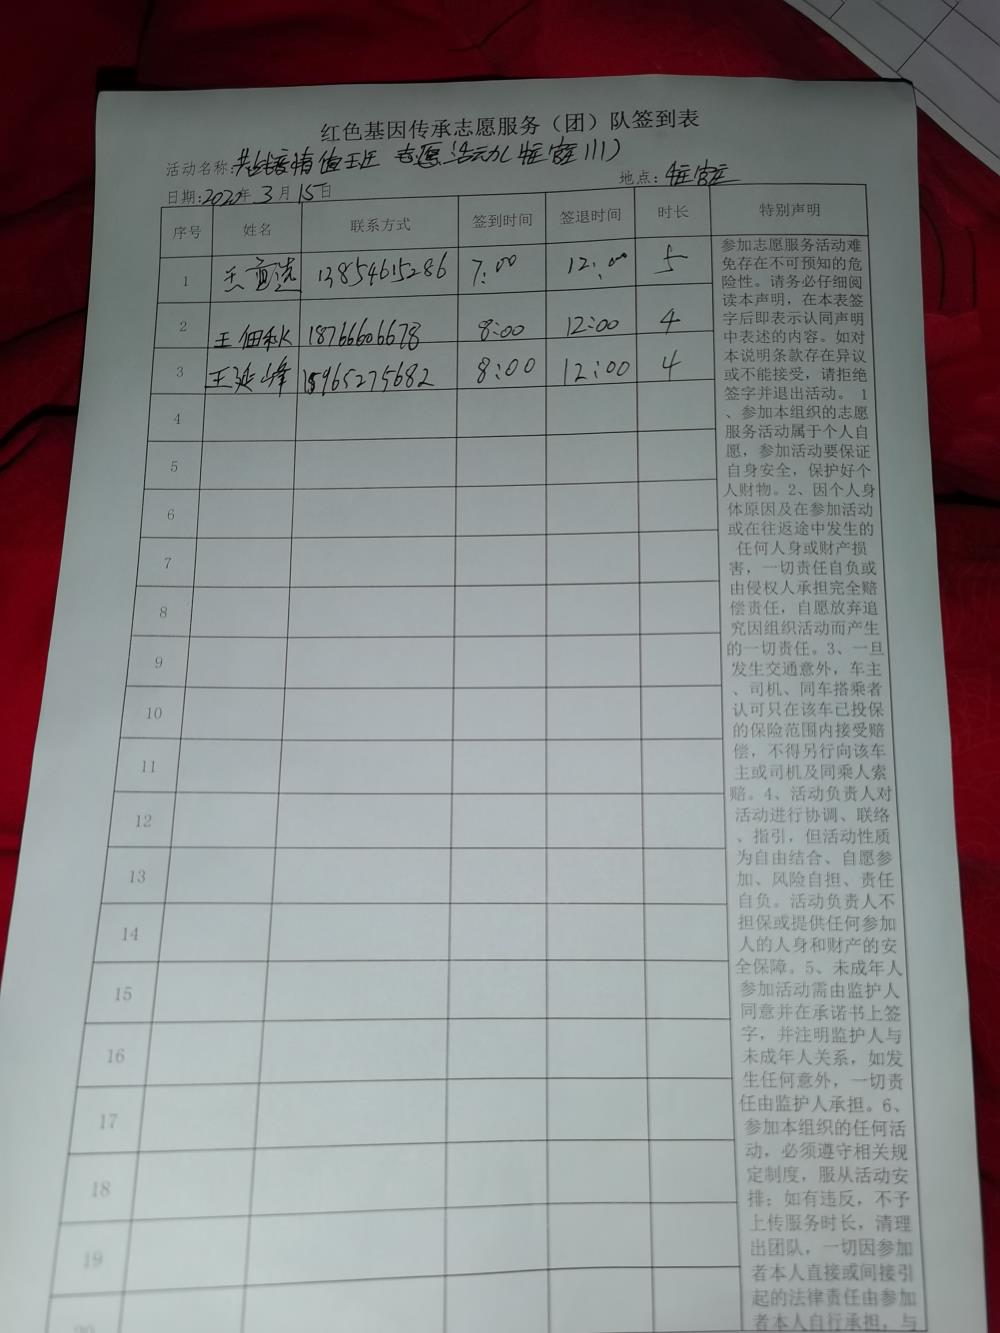 红色基因传承志愿服务（团）队签到表
活动名称: 情值班 志愿活动
日期:2020年3月15日 地点:
序号 姓名 联系方式 签到时间 签退时间 时长 特别声明
1 王 13854615286 7:00 12:00 5
2 王佃秋 18766606678 8:00 12:00 4
3 王延峰 15965275682 8:00 12:00 4
4
5
6
7
8
9
10
11
12
13
14
15
16
17
18
19
20
参加志愿服务活动难
免存在不可预知的危
险性。请务必仔细阅
读本声明，在本表签
字后即表示认同声明
中表述的内容。如对
本说明条款存在异议
或不能接受，请拒绝
签字并退出活动。 1
、参加本组织的志愿
服务活动属于个人自
愿，参加活动要保证
自身安全，保护好个
人财物。2、因个人身
体原因及在参加活动
或在往返途中发生的
任何人身或财产损
害，一切责任自负或
由侵权人承担完全赔
偿责任，自愿放弃追
究因组织活动而产生
的一切责任。3、一旦
发生交通意外，车主
、司机、同车搭乘者
认可只在该车已投保
的保险范围内接受赔
偿，不得另行向该车
主或司机及同乘人索
赔。4、活动负责人对
活动进行协调、联络
、指引，但活动性质
为自由结合、自愿参
加、风险自担、责任
自负。活动负责人不
担保或提供任何参加
人的人身和财产的安
全保障。5、未成年人
参加活动需由监护人
同意并在承诺书上签
字，并注明监护人与
未成年人关系，如发
生任何意外，一切责
任由监护人承担。6、
参加本组织的任何活
动，必须遵守相关规
定制度，服从活动安
排；如有违反，不予
上传服务时长，清理
出团队，一切因参加
者本人直接或间接引
起的法律责任由参加
者本人自行承担，与